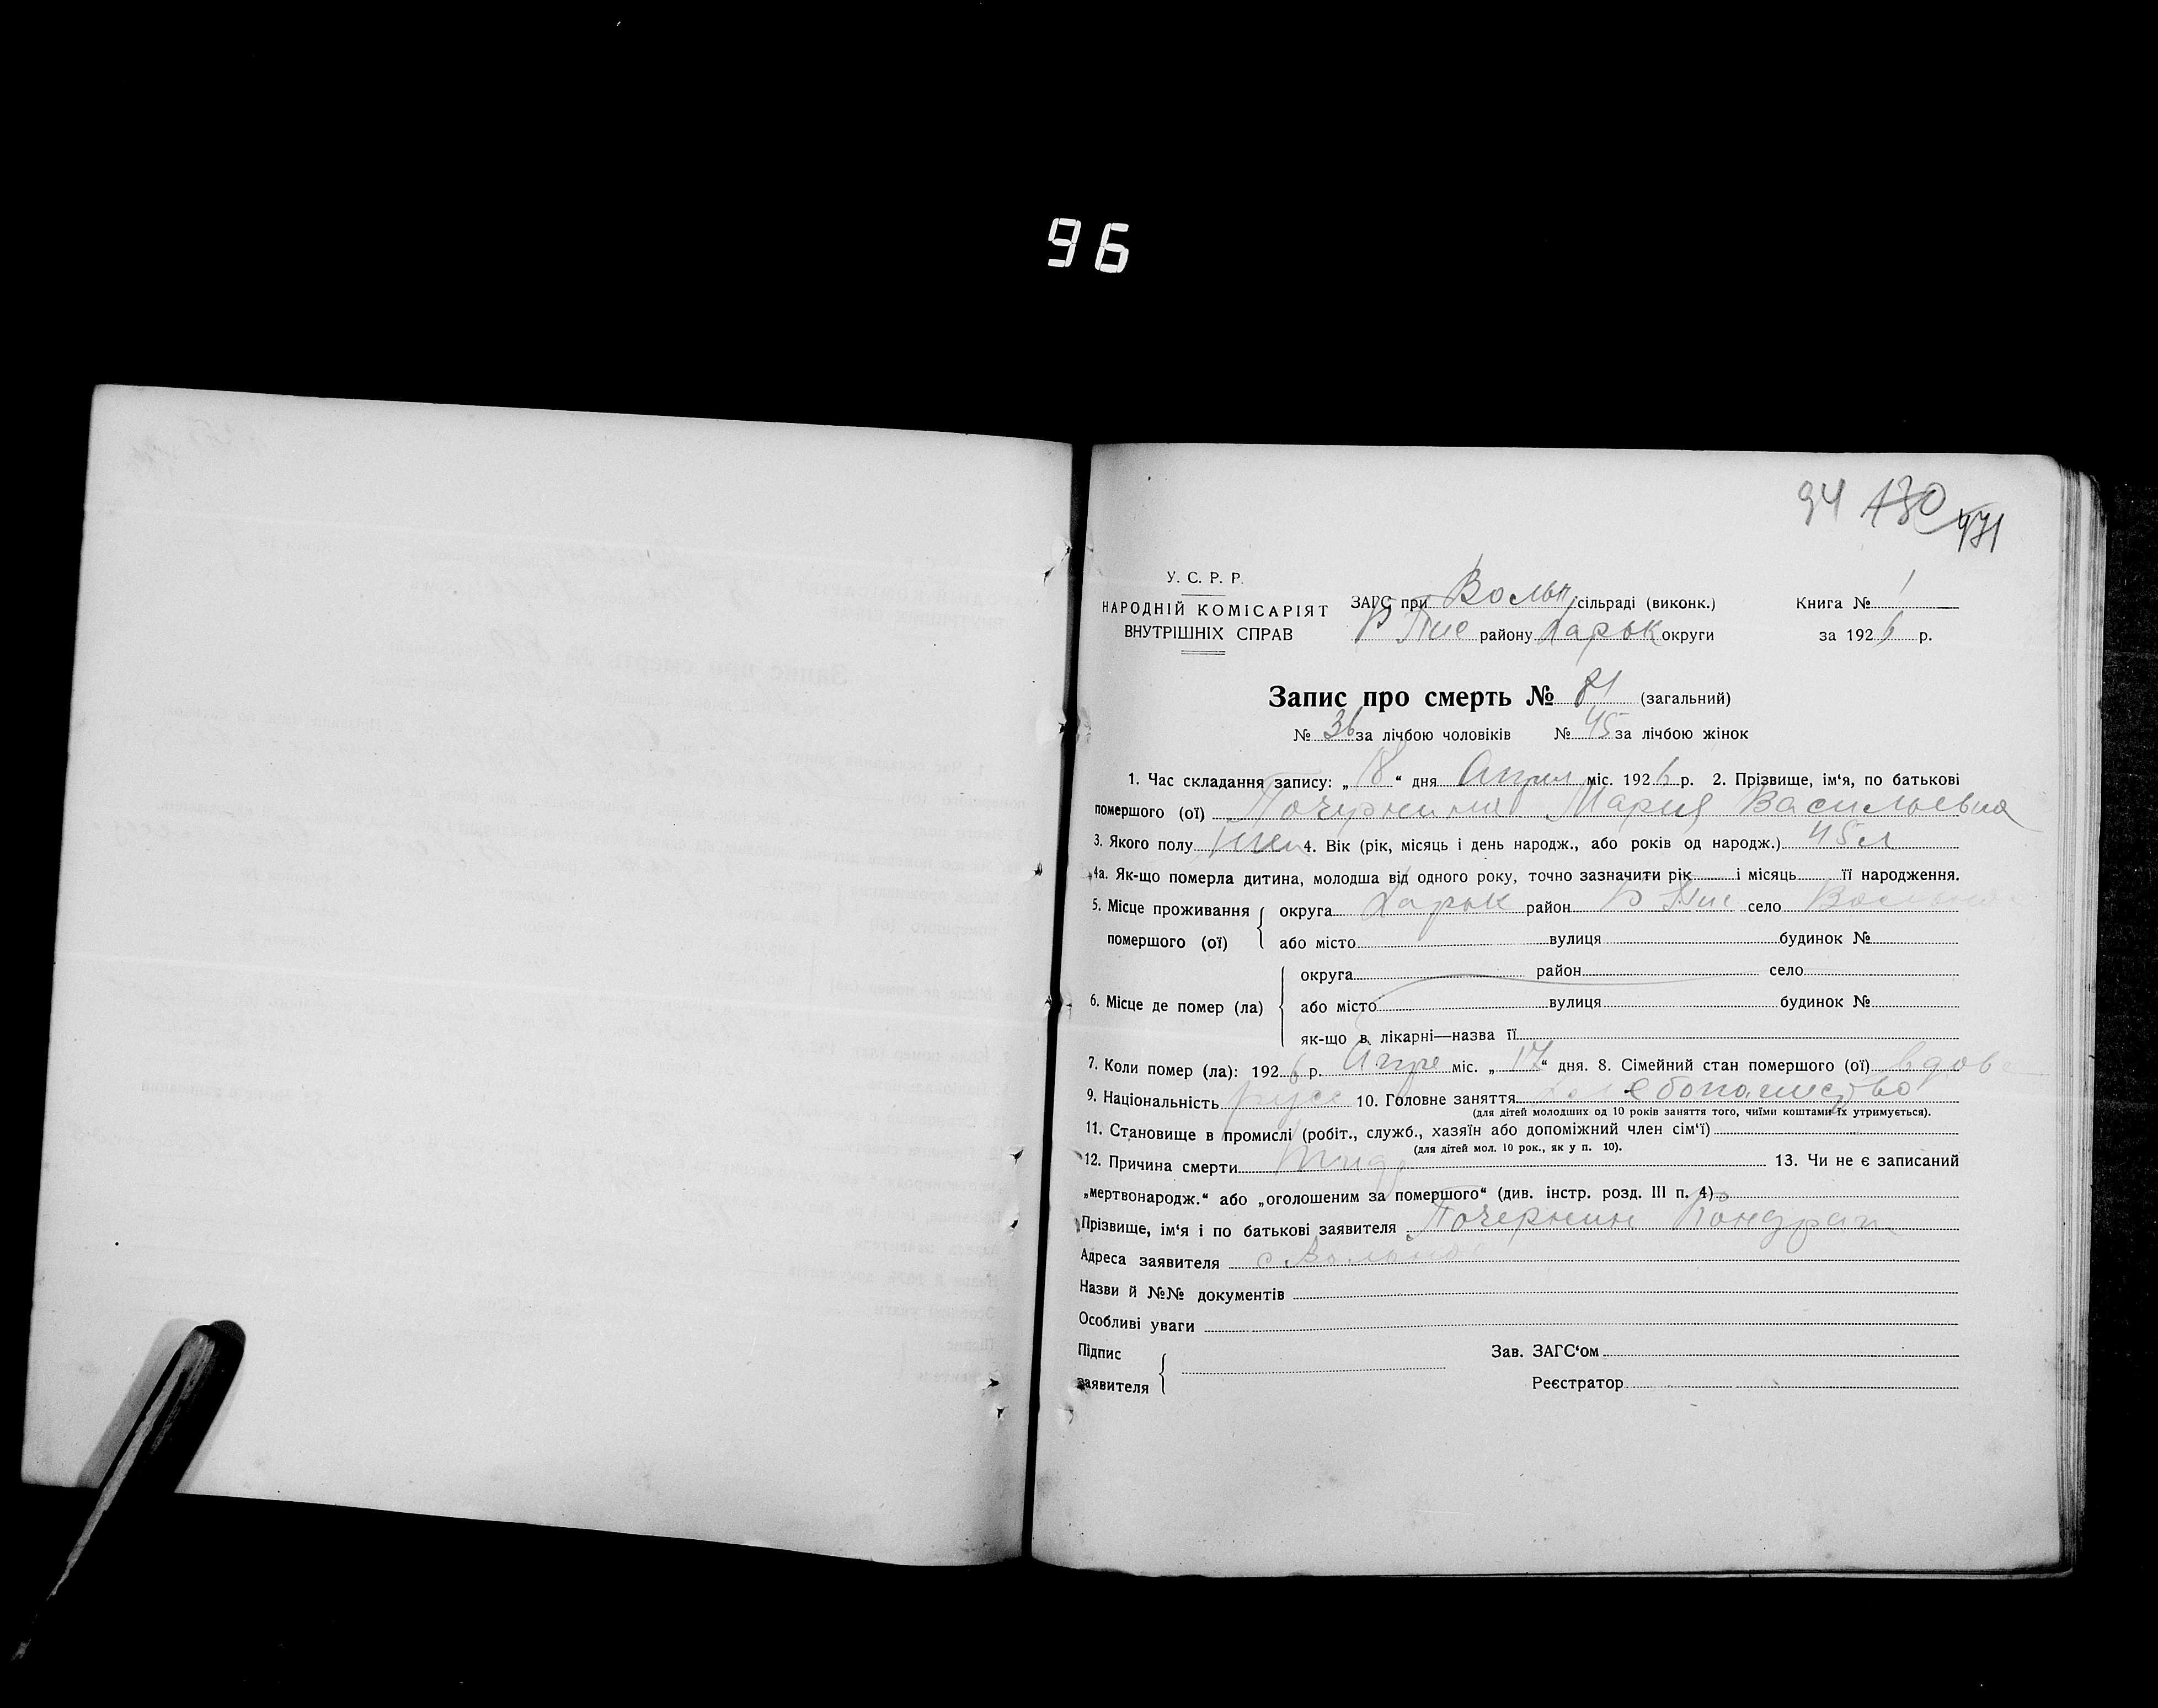 96
94 130 131
У. С. Р. Р.
НАРОДНІЙ КОМІСАРІЯТ
ВНУТРІШНІХ СПРАВ
ЗАГС при Вольн сільраді (виконк.)
району Харьк округи
Книга № 1
за 1926 р.
Запис про смерть № 81 (загальний)
№ 36 за лічбою чоловіків № 45 за лічбою жінок
1. Час складання запису: „18“ дня Апрел міс. 1926 р. 2. Прізвище, ім‘я, по батькові
помершого (ої) Мария Васильевна
3. Якого полу жен 4. Вік (рік, місяць і день народж., або років од народж.) 45 л
4а. Як-що померла дитина, молодша від одного року, точно зазначити рік і місяць її народження.
5. Місце проживання
помершого (ої)
округа Харьк район село
або місто вулиця будинок №
6. Місце де помер (ла)
округа район село
або місто вулиця будинок №
як-що в лікарні—назва її
7. Коли помер (ла): 1926 р. Апре міс. „17“ дня. 8. Сімейний стан помершого (ої) вдова
9. Національність русс 10. Головне заняття хлебопашество
(для дітей молодших од 10 років заняття того, чиїми коштами їх утримується).
11. Становище в промислі (робіт., служб., хазяїн або допоміжний член сім‘ї)
(для дітей мол. 10 рок., як у п. 10).
12. Причина смерти 13. Чи не є записаний
„мертвонародж.“ або „оголошеним за помершого“ (див. інстр. розд. III п. 4)
Прізвище, ім‘я і по батькові заявителя Почернин Кондрат
Адреса заявителя с.
Назви й №№ документів
Особливі уваги
Підпис
заявителя
Зав. ЗАГС‘ом
Реєстратор